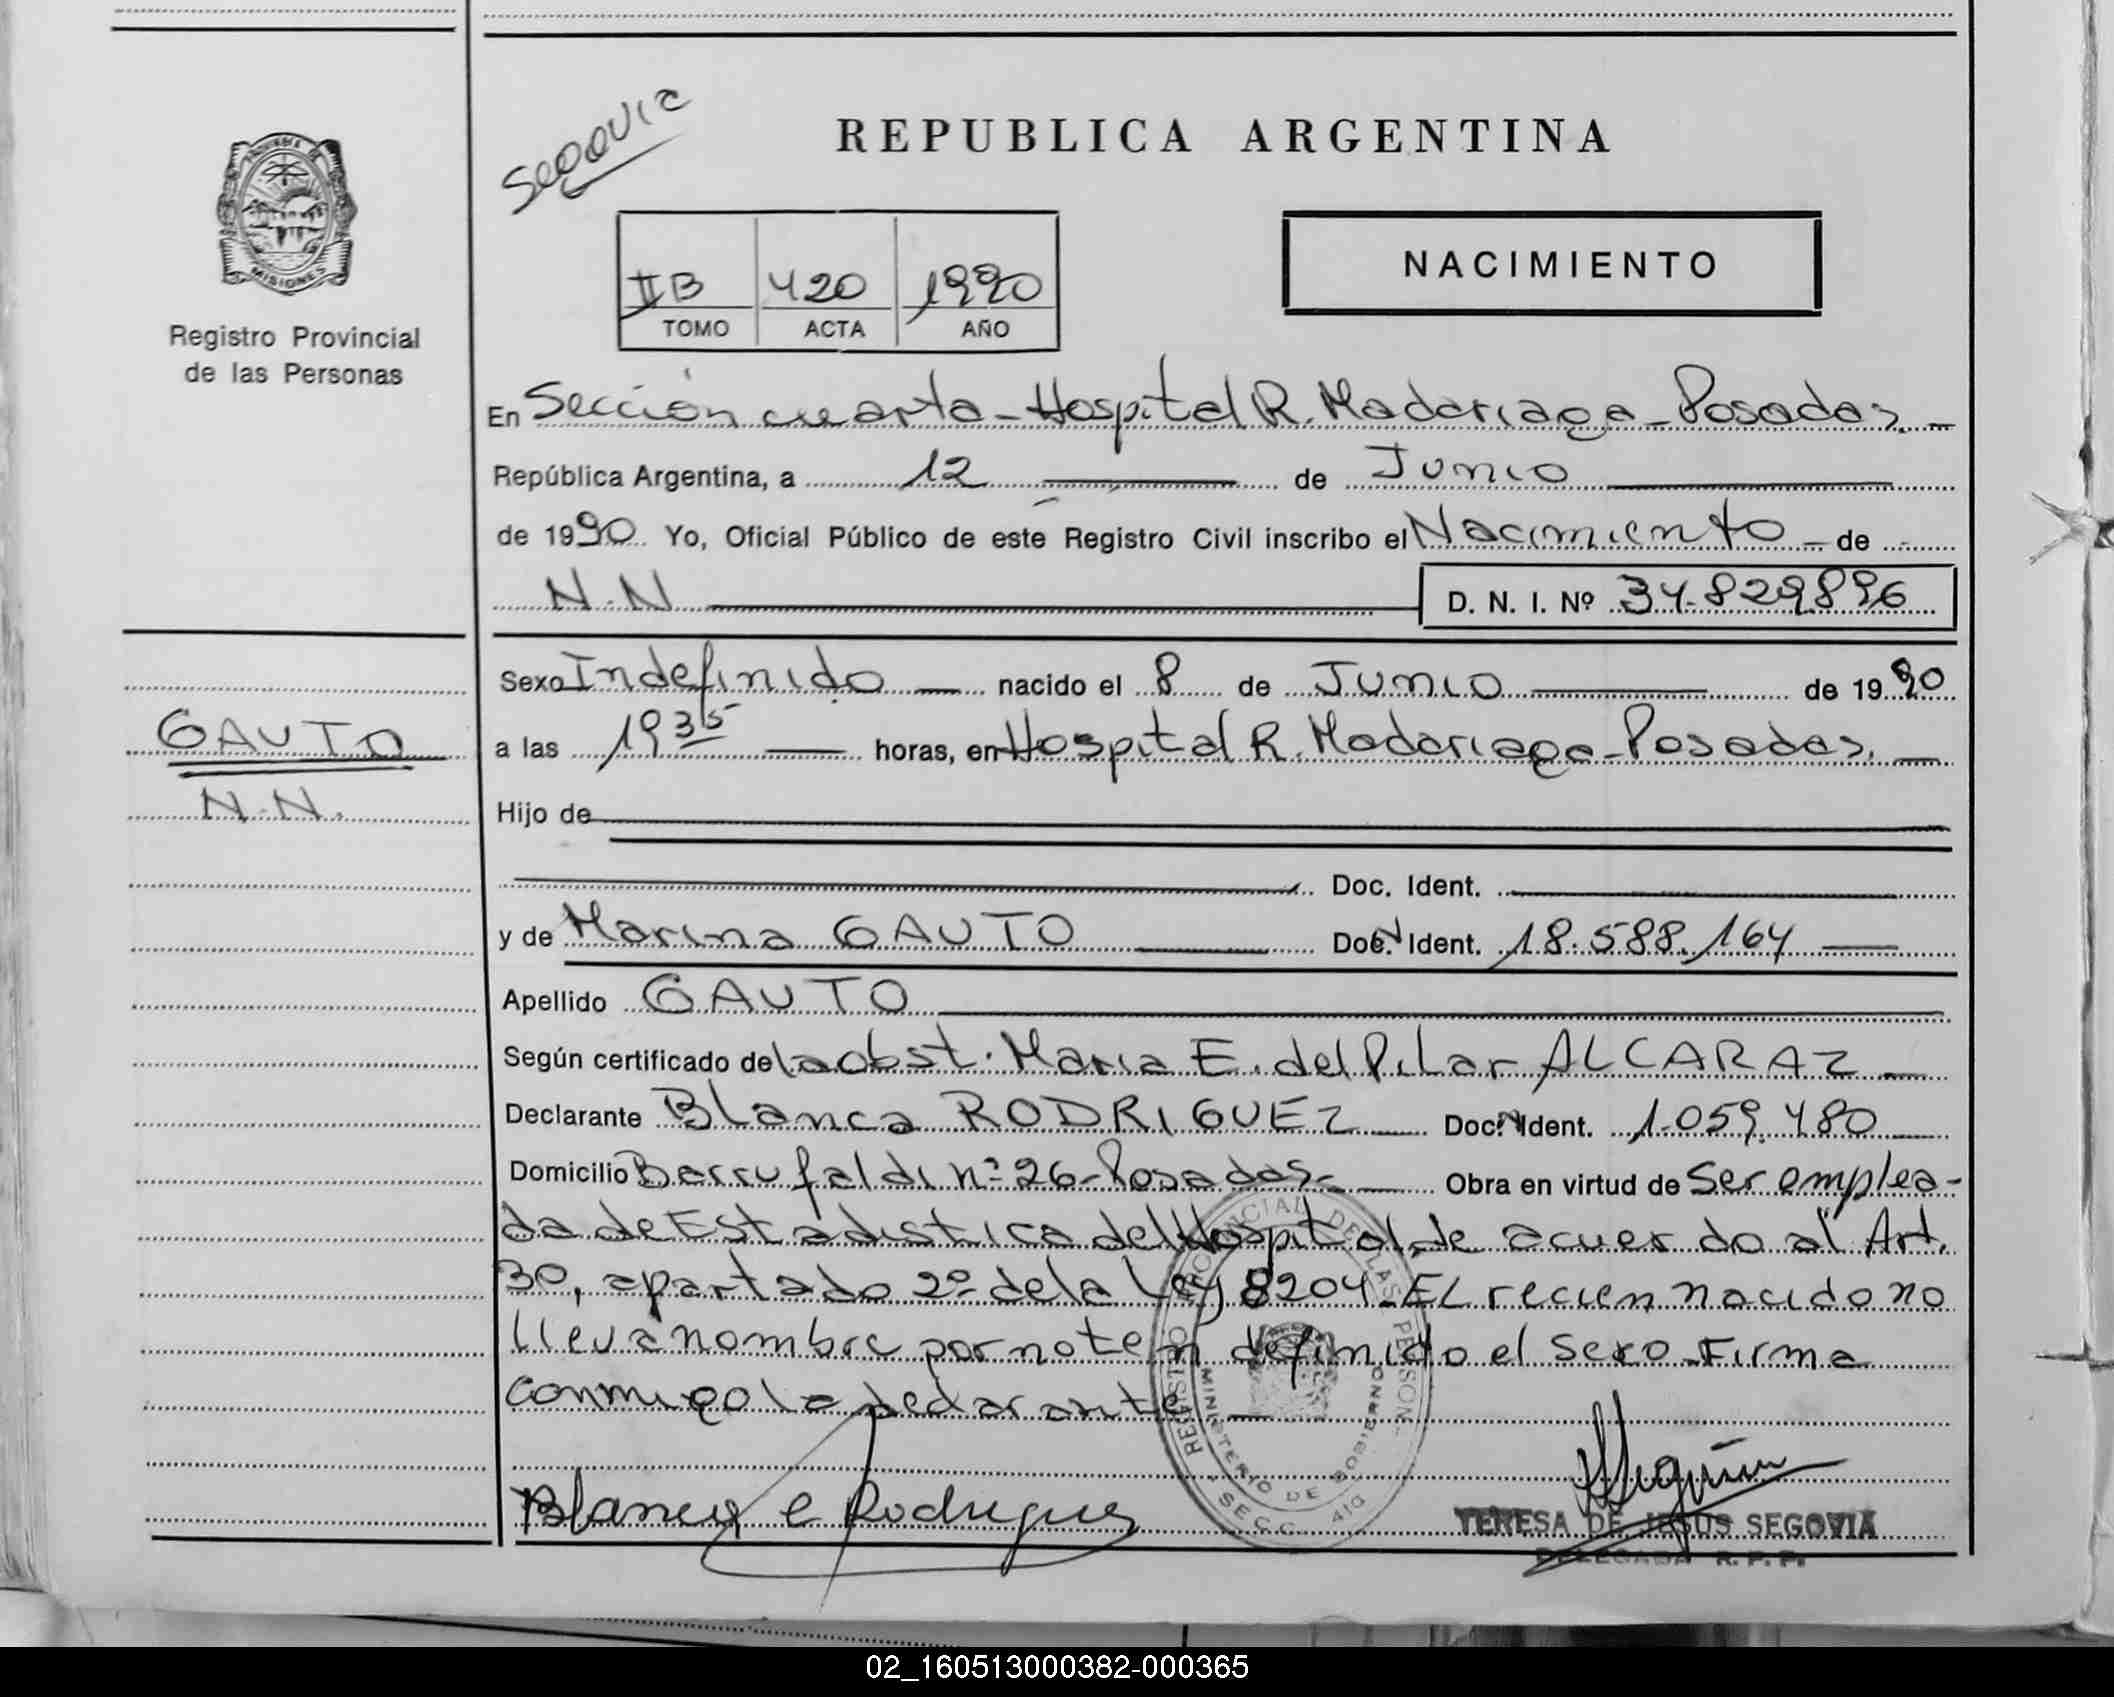 Segovia
REPUBLICA ARGENTINA
PROVINCIA DE
MISIONES
Registro Provincial
de las Personas
II B 420 1990
TOMO ACTA AÑO
NACIMIENTO
En Sección cuarta - Hospital R. Madariaga - Posadas. -
República Argentina, a 12 de Junio
de 1990. Yo, Oficial Público de este Registro Civil inscribo el Nacimiento - de
N.N D. N. I. Nº 34.829896
Sexo Indefinido nacido el 8 de Junio de 1990
a las 19 35 horas, en Hospital R. Madariaga - Posadas. -
GAUTO
N.N.
Hijo de
Doc. Ident.
y de Marina GAUTO Doc. N Ident. 18.588.164
Apellido GAUTO
Según certificado de la obst. Maria E. del Pilar ALCARAZ
Declarante Blanca RODRIGUEZ Doc. N Ident. 1.059.480
Domicilio Berrufaldi nº 26 - Posadas - Obra en virtud de Ser emplea-
da de Estadistica del Hospital, de acuerdo al Art.
30, apartado 2º de la Ley 8204. El recien nacido no
lleva nombre por no ten definido el sexo. Firma
conmigo la declarante -
REGISTRO PROVINCIAL DE LAS PERSON.
MINISTERIO DE GOBIERNO
SECC. 4ta
Blanca e Rodriguez
TERESA DE JESUS SEGOVIA
DELEGADA R. P. P.
02_160513000382-000365